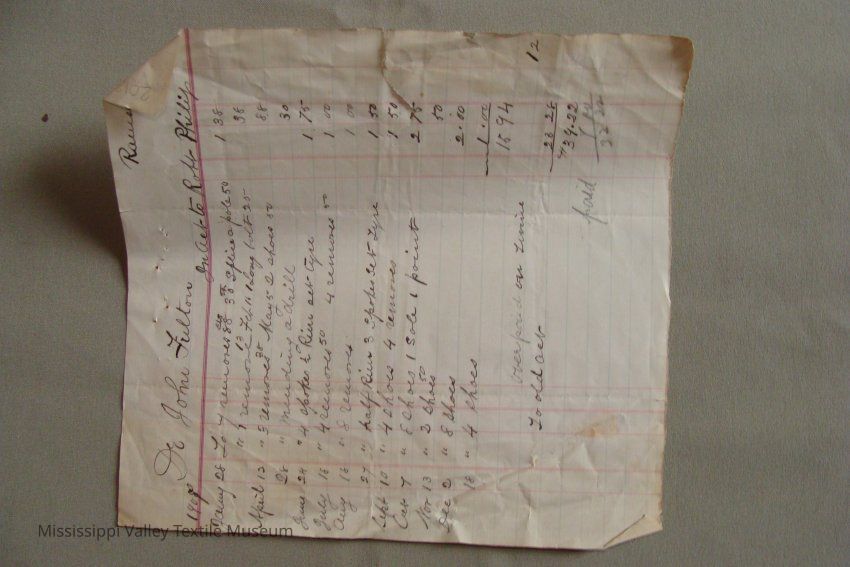 Rams
Dr John Fulton
In Act to Robt Philip
Jany 28 To 7 removes 88 splice a pole 50 1 38
" 1 remove 13 Feb 11 1 long bolt 25 38
April 13 " 3 removes 38 May 5 2 shoes 50 88
28 " mending a drill 30
June 24 " 4 spokes ½ Rim set tyre 1 75
July 16 " 4 removes 50 4 removes 50 1 00
Aug 16 " 8 removes 1 00
27 " half Rim 3 spokes set tyre 1 50
Sept 10 " 4 shoes 4 removes 1 50
Oct 7 " 8 shoes 1 Sole 1 point 2 75
Nov 13 " 2 shoes 50 50
Dec 2 " 8 shoes 2.00
16 " 4 shoes 1.00
15 94
over paid on 12
To old act 23 28
39.22
paid
Mississippi Valley Textile Museum